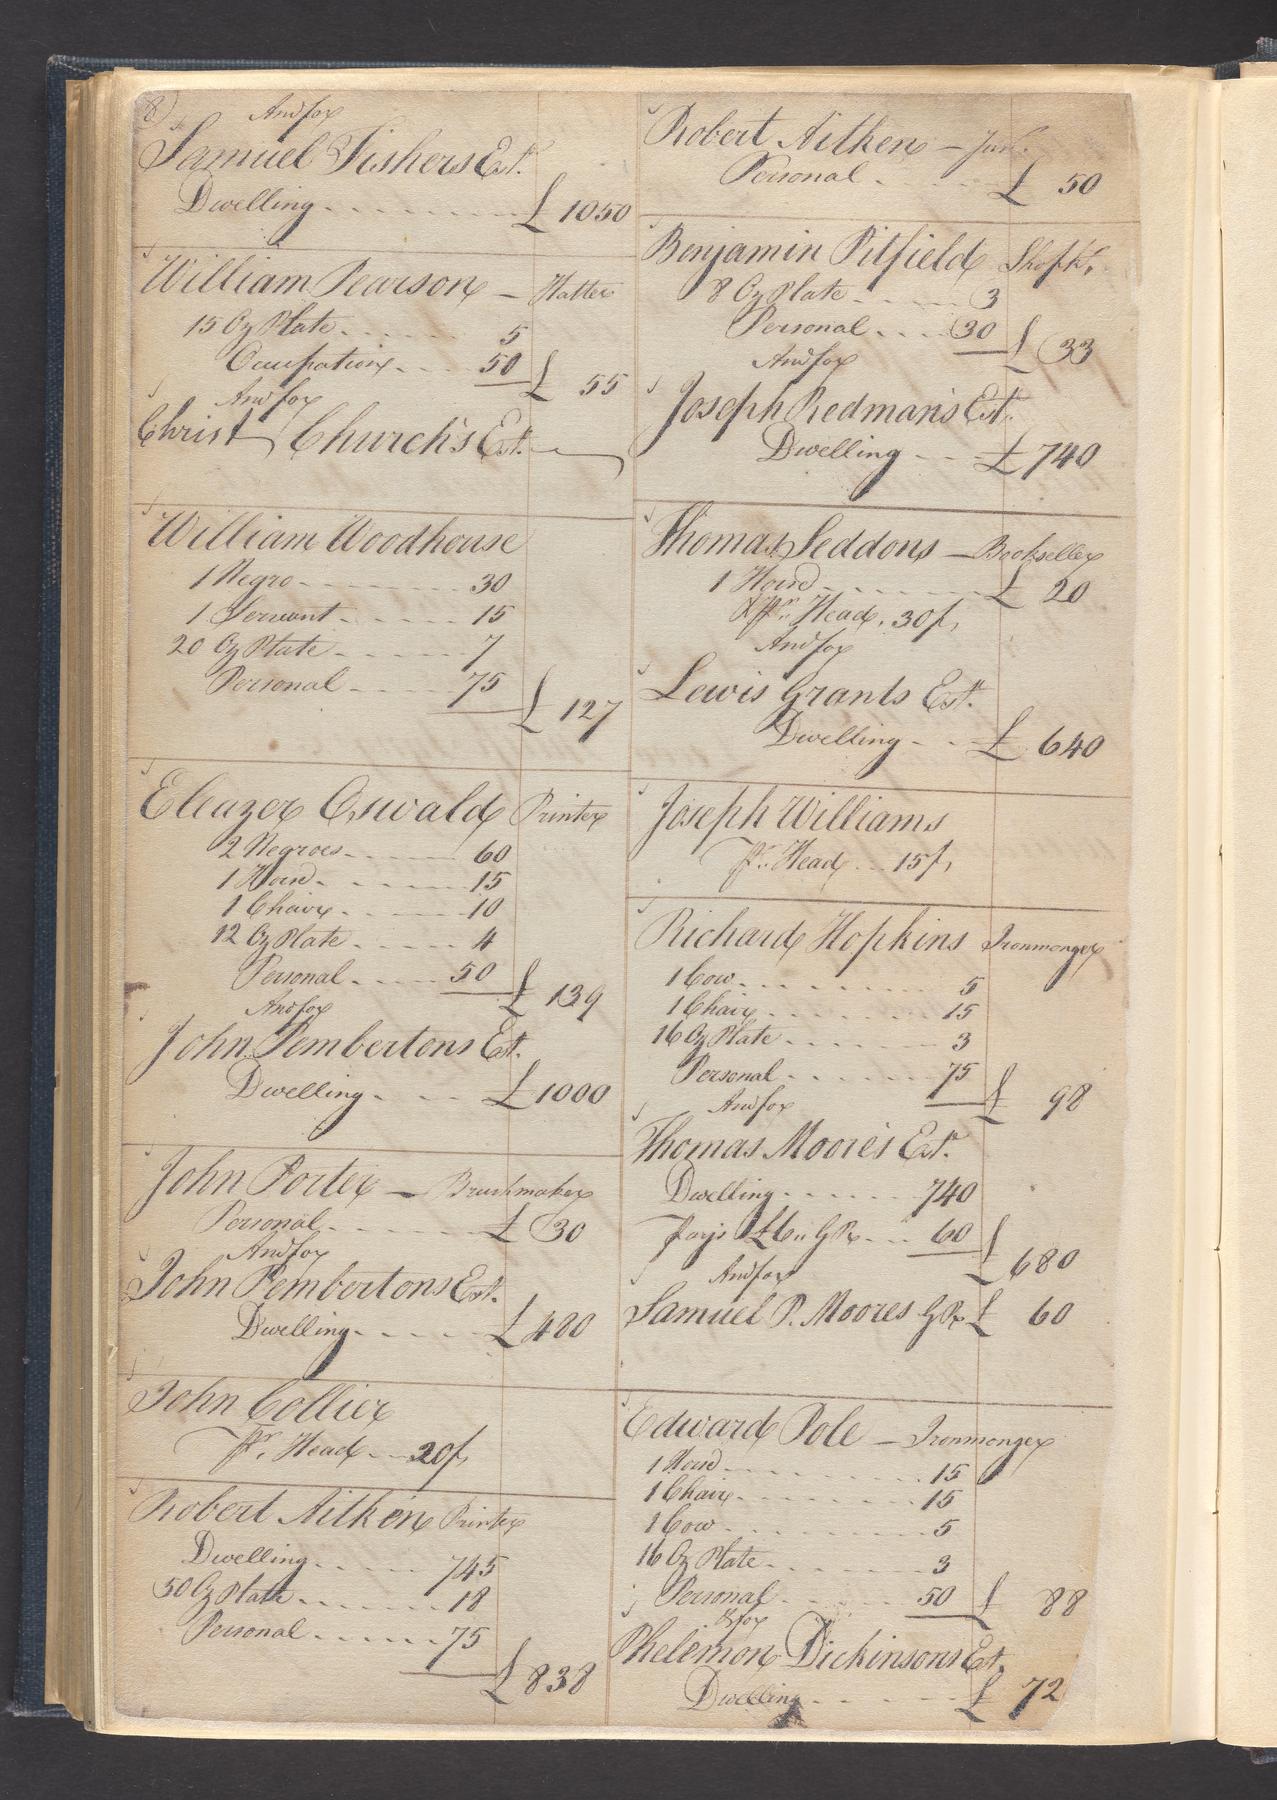 8
And for
Samuel Fishers Est.
Dwelling - - - - £ 1050
William Pearson - Hatter
15 Oz Plate - - - 5
Occupation - - 50 £ 55
And for
Christ Church's Est.
William Woodhouse
1 Negro - - - 30
1 Servant - - - 15
20 Oz Plate - - - 7
Personal - - - 75 £ 127
Eleazer Oswald Printer
2 Negroes - - - 60
1 Horse - - - 15
1 Chair - - - 10
12 Oz Plate - - - 4
Personal - - - 50 £ 139
And for
John Pembertons Est.
Dwelling - - - £ 1000
John Porter - Brushmaker
Personal - - - £ 30
And for
John Pembertons Est.
Dwelling - - - £ 480
John Collier
Pr. Head - - 20/,
Robert Aitken Printer
Dwelling - - - 745
50 Oz Plate - - - 18
Personal - - - 75
£ 838
Robert Aitken - Junr.
Personal - - - £ 50
Benjamin Pitfield Shopkr.
8 Oz Plate - - - 3
Personal - - - 30 £ 33
And for
Joseph Redman's Est.
Dwelling - - - £ 740
Thomas Seddons - Bookseller
1 Horse - - - £ 20
& Pr. Head, 30/,
And for
Lewis Grants Est.
Dwelling - - £ 640
Joseph Williams
Pr. Head - - 15/,
Richard Hopkins Ironmonger
1 Cow - - - 5
1 Chair - - - 15
16 Oz Plate - - - 3
Personal - - - 75 £ 98
And for
Thomas Moore's Est.
Dwelling - - - 740
Pays £6 " GR - - 60 £ 680
And for
Samuel P. Moores GR £ 60
Edward Pole - Ironmonger
1 Horse - - - 15
1 Chair - - - 15
1 Cow - - - 5
16 Oz Plate - - - 3
Personal - - - 50 £ 88
& for
Phelemon Dickinsons Est.
Dwelling - - - £ 72